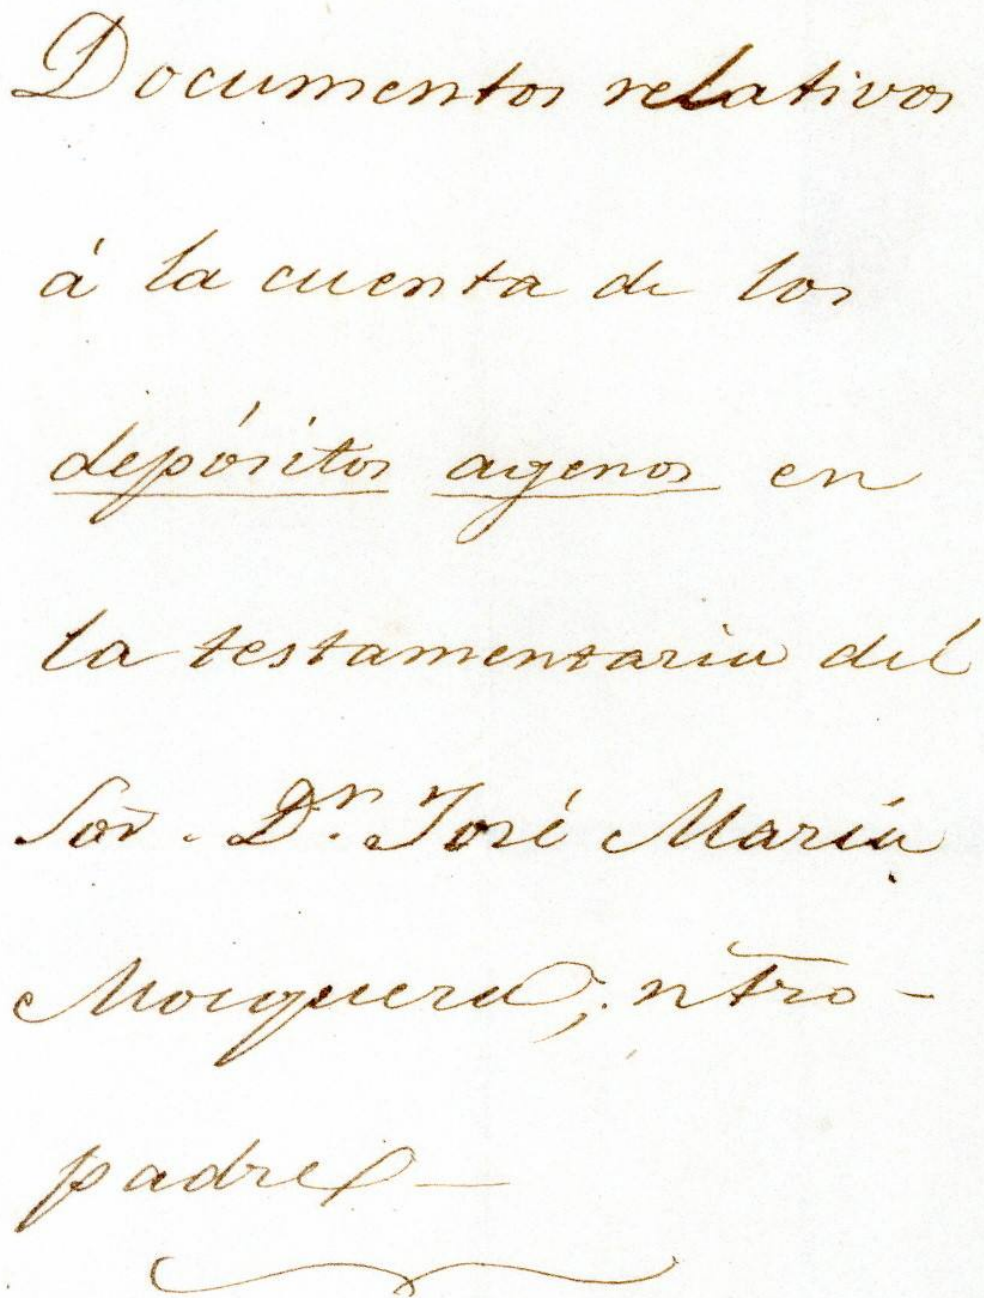 Documentos relativos
á la cuenta de los
depósitos agenos en
la testamentaria del
Sor̄. Dn. José María
Mosquera; ntr̄o -
padre —